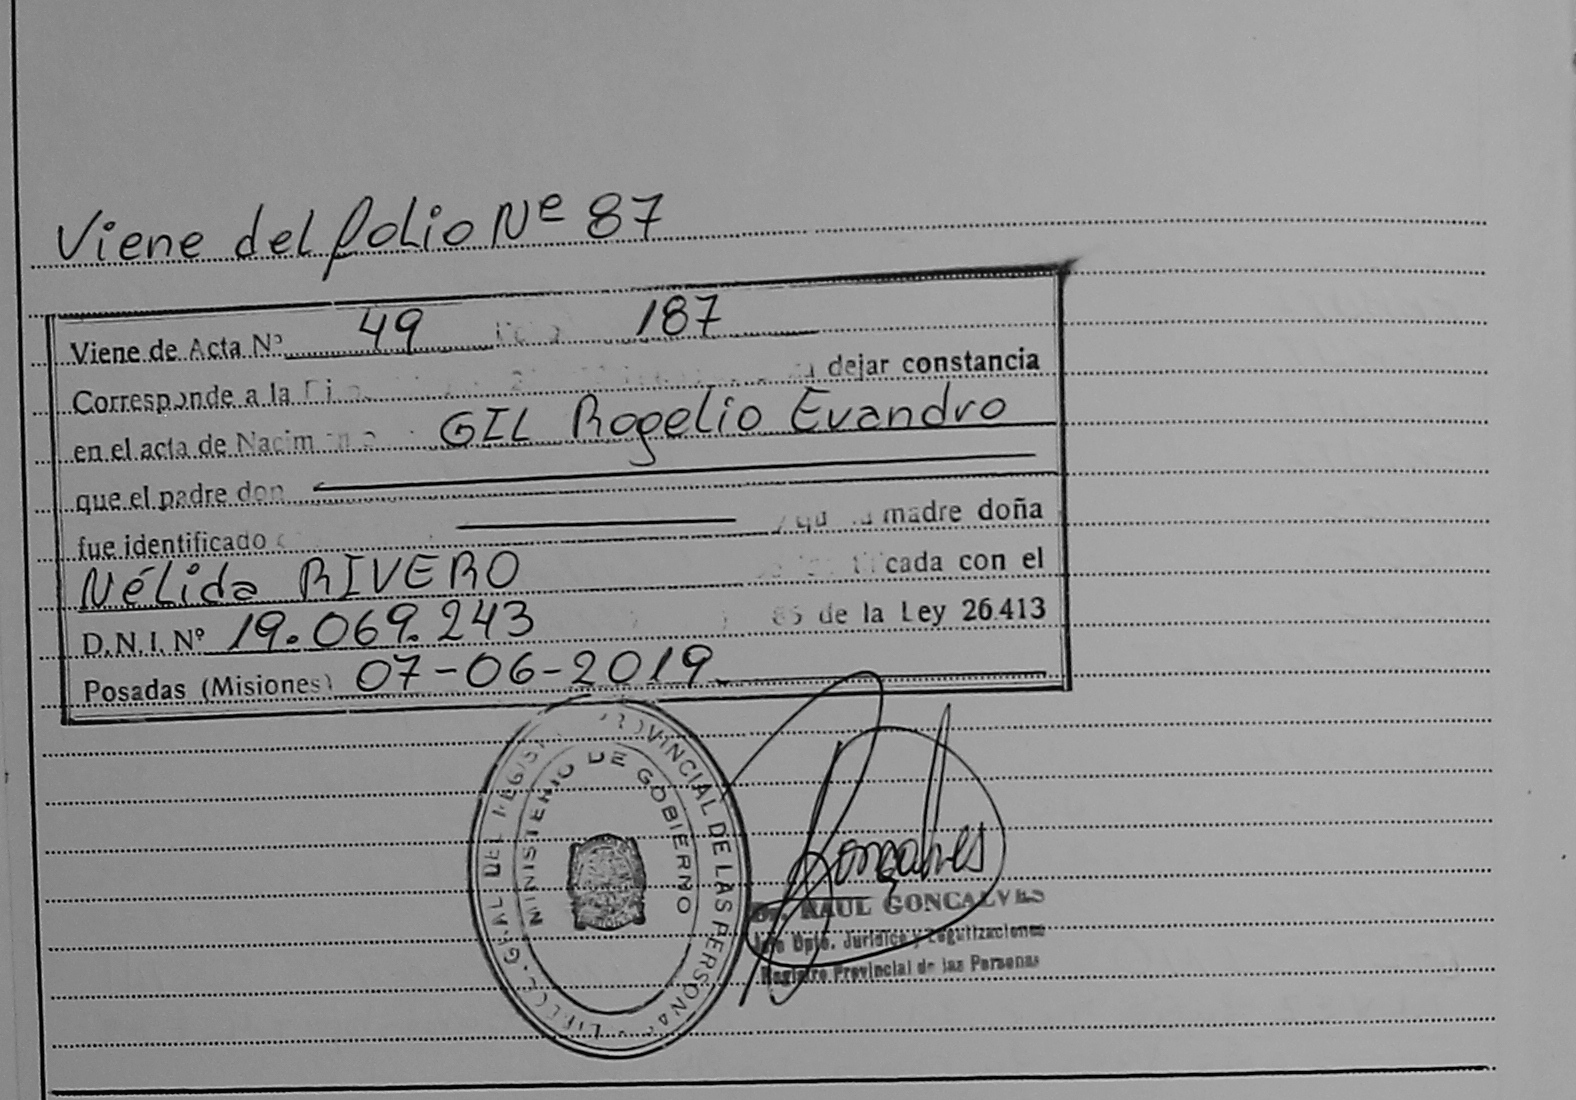 Viene del folio Nº 87
Viene de Acta Nº 49 187
Corresponde a la dejar constancia
en el acta de GIL Rogelio Evandro
que el padre don
fue identificado madre doña
Nélida RIVERO cada con el
D.N.I. Nº 19.069.243 85 de la Ley 26.413
Posadas (Misiones) 07-06-2019
PROVINCIAL DE LAS PERSONAS
MINISTERIO DE GOBIERNO
Gonçalves
Dr. RAUL GONCALVES
Jefe Dpto. Jurídico y Legalizaciones
Registro Provincial de las Personas